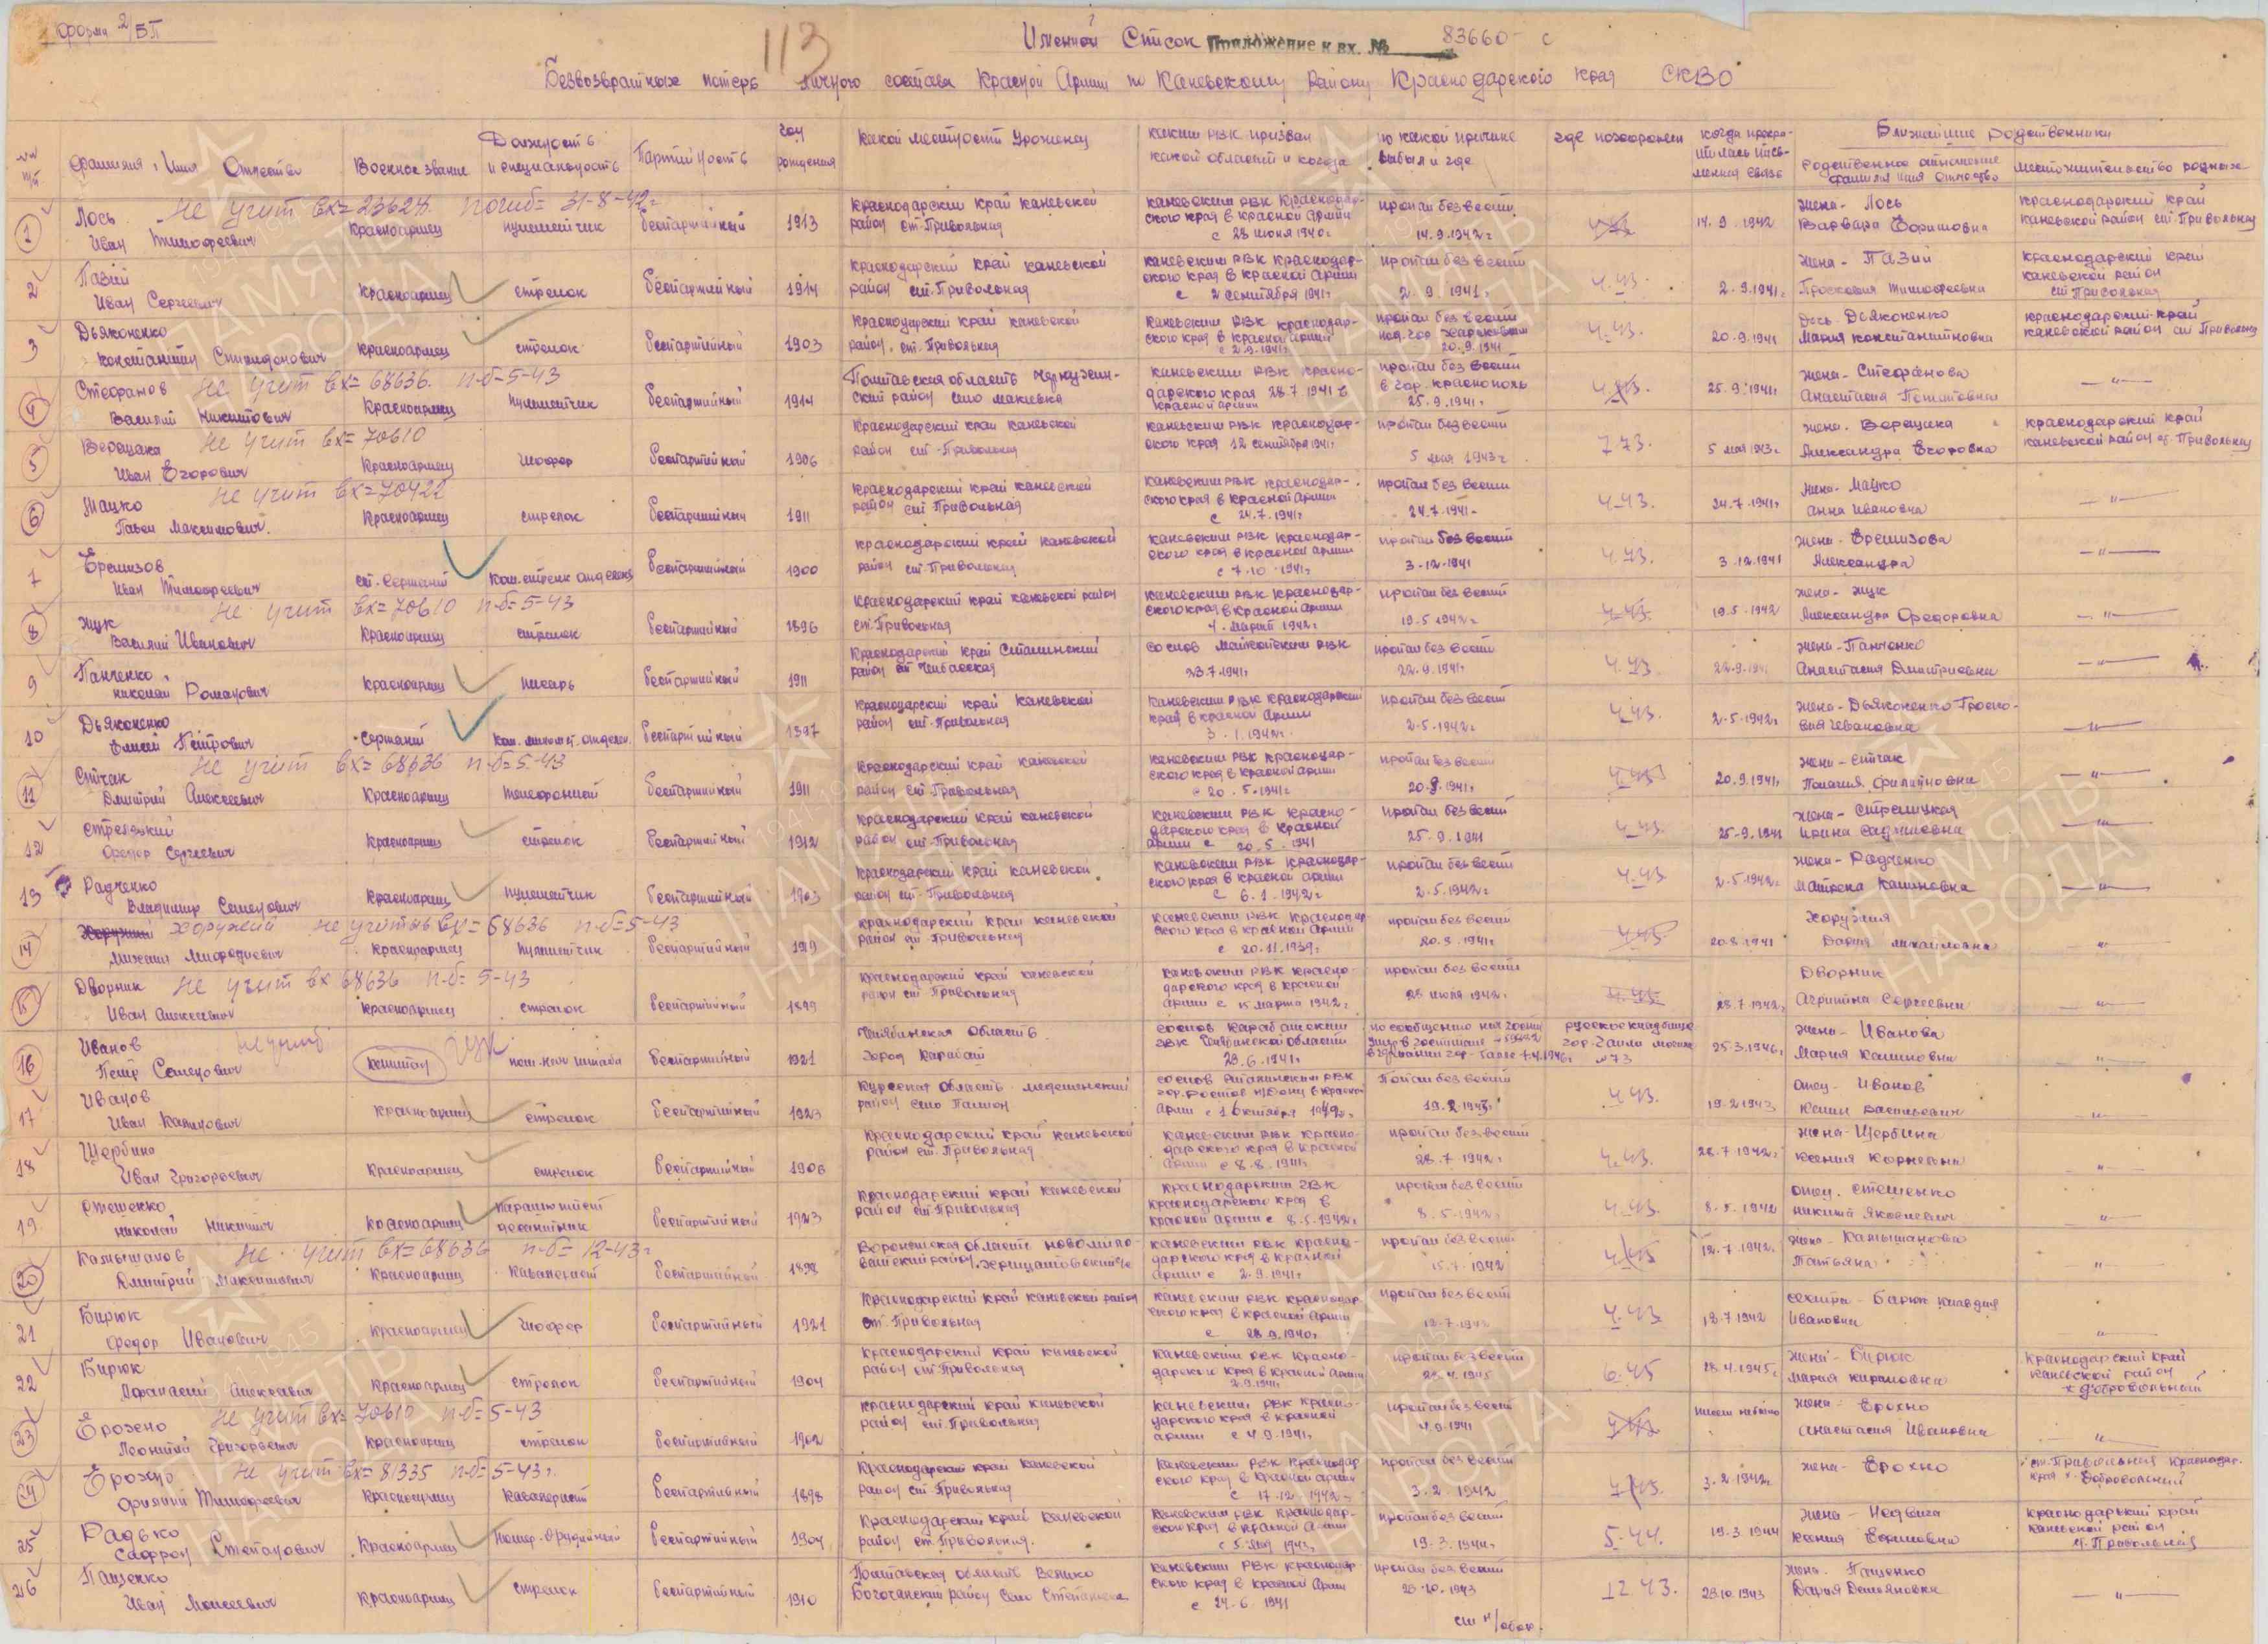 Форма 2/БП
113
Именной Список Приложение к вх. № 83660 с
Безвозвратных потерь личного состава Красной Армии по Каневскому району Краснодарского края СКВО
№№ п/п
Фамилия, Имя Отчество
Военное звание
Должность и специальность
Партийность
год рождения
Какой местности Уроженец
каким РВК призван какой области и когда
по какой причине выбыл и где
где похоронен
когда прекратилась письменная связь
Ближайшие родственники
родственное отношение фамилия имя отчество
местожительство родных
1 Лось Не учит вх=23628. погиб= 31-8-42г
Иван Тимофеевич Красноармеец пулеметчик беспартийный 1913
Краснодарский край каневской район ст. Привольная
каневским РВК Краснодарского края в красной Армии с 28 июня 1940г
пропал без вести 14.9.1942г
14.9.1942
жена - Лось Варвара Ефимовна
Краснодарский край каневской район ст Привольная
2 Пазий Иван Сергеевич Красноармеец стрелок беспартийный 1914
Краснодарский край каневской район ст. Привольная
каневским РВК краснодарского края в Красной Армии с 2 сентября 1941г
пропал без вести 2.9.1941г
4.43.
2.9.1941г
жена - Пазий Просковия Тимофеевна
Краснодарский край каневской район ст Привольная
3 Дьяконенко Константин Спиридонович красноармеец стрелок беспартийный 1903
Краснодарский край каневской район. ст. Привольная
каневским РВК краснодарского края в Красной Армии с 2.9.1941г
пропал без вести под гор Харьковом 20.9.1941
4.43.
20.9.1941
дочь. Дьяконенко Мария константиновна
краснодарский край каневской район ст Привольная
4 Стефанов Не учит вх=68636. п-б=5-43
Василий Никитович Красноармеец пулеметчик беспартийный 1914
Полтавская область район село макиевка
каневским РВК краснодарского края 28.7.1941 в красной армии
пропал без вести в гор. краснополь 25.9.1941г
4.43.
25.9.1941г
жена - Стефанова Анастасия
—〃—
5 Верещака Не учит вх=70610
Иван Егорович Красноармеец Шофер беспартийный 1906
Краснодарский край каневской район ст - Привольная
каневским РВК краснодарского края 12 сентября 1941г
пропал без вести 5 мая 1943г
7.43.
5 мая 1943г
жена. Верещака Александра Егоровна
краснодарский край каневской район ст. Привольная
6 Мацко Не учит вх=70422
Павел Максимович. Красноармеец стрелок беспартийный 1911
Краснодарский край каневской район ст Привольная
каневским РВК краснодарского края в Красной Армии с 24.7.1941г
пропал без вести 24.7.1941
4.43.
24.7.1941г
жена - Мацко Анна Ивановна
—〃—
7 Ерешизов Иван Тимофеевич ст. Сержант ком. стрелк отделен беспартийный 1900
краснодарский край каневской район ст Привольная
каневским РВК краснодарского края в красной армии с 7.10.1941г
пропал без вести 3.12.1941
4.43.
3.12.1941
жена - Ерешизова Александра
—〃—
8 Жук Не учит вх=70610 п-б=5-43
Василий Иванович Красноармеец стрелок беспартийный 1896
Краснодарский край каневской район ст. Привольная
каневским РВК краснодарского края в Красной Армии 4. марта 1942г
пропал без вести 19.5.1942г
4.43.
19.5.1942
жена - Жук Александра Федоровна
—〃—
9 Панченко Николай Романович Красноармеец писарь беспартийный 1911
Краснодарский край Сталинский район ст
Майкопским РВК 23.7.1941г
пропал без вести 22.9.1941г
4.43.
22.9.
жена - Панченко Анастасия Дмитриевна
—〃—
10 Дьяконенко Петрович Сержант ком. миномет. отделен. беспартийный 1897
краснодарский край каневской район ст. Привольная
каневским РВК Краснодарский край в красной Армии 3.1.1942г
пропал без вести 2.5.1942г
4.43.
2.5.1942г
жена - Дьяконенко Ивановна
—〃—
11 Спичак Не учит вх=68636 п-б=5-43
Дмитрий Алексеевич Красноармеец Телефонист беспартийный 1911
Краснодарский край каневской район ст. Привольная
каневским РВК краснодарского края в Красной армии с 20.5.1941г
пропал без вести 20.9.1941г
4.43
20.9.1941г
жена - Спичак Пелагия Филиповна
—〃—
12 Федор Сергеевич Красноармеец стрелок беспартийный 1912
Краснодарский край каневской район ст. Привольная
каневским РВК краснодарского края в Красной Армии с 20.5.1941
пропал без вести 25.9.1941
4.43.
25.9.1941
жена - Стрелицкая Ирина
—〃—
13 Радченко Владимир Семенович Красноармеец пулеметчик беспартийный 1903
Краснодарский край каневской район ст - Привольная
каневским РВК Краснодарского края в красной армии с 6.1.1942г
пропал без вести 2.5.1942г
4.43
2.5.1942г
жена - Радченко Матрена Калиновна
—〃—
14 Хоружий не учит вх=68636 п-б=5-43
Михаил Миродиевич Красноармеец пулеметчик беспартийный 1919
краснодарский край каневской район ст Привольная
каневским РВК Краснодарского края в красной Армии с 20.11.1939г
пропал без вести 20.8.1941г
20.8.1941
Хоружия Дария михайловна
〃
15 Дворник Не учит вх 68636 п-б= 5-43
Иван Алексеевич красноармеец стрелок беспартийный 1899
Краснодарский край каневской район ст Привольная
каневским РВК краснодарского края в красной Армии с 15 марта 1942г
пропал без вести 28 июля 1942г
28.7.1942г
Дворник Агрипина Сергеевна
〃
16 Иванов не учит Петр Семенович капитан пом. нач штаба беспартийный 1921
Челябинская Область город Карабаш
Карабашским РВК Челябинской области 29.6.1941г
русское кладбище №73
25.3.1946г
жена - Иванова Мария Калиновна
〃
17 Иванов Иван Красноармеец стрелок беспартийный 1923
Курская Область район село
Сталинским РВК гор. Ростов н/Дону в красной Армии с 1 октября
19.2.1943г
4.43.
19.2.1943
отец - Иванов Васильевич
〃
18 Щербина Иван Григорьевич Красноармеец стрелок беспартийный 1906
Краснодарский край каневской район ст. Привольная
каневским РВК краснодарского края в Красной Армии с 8.8.1941г
пропал без вести 28.7.1942г
4.43.
28.7.1942г
жена - Щербина Ксения Корнеевна
〃
19 Стешенко Николай Никитич Красноармеец парашютист десантник беспартийный 1923
Краснодарский край каневской район ст. Привольная
Краснодарским ГВК краснодарского края в Красной Армии с 8.5.1942г
пропал без вести 8.5.1942г
4.43.
8.5.1942
отец. Стешенко Никита Яковлевич
〃
20 Камышанов Не учит вх=68636 п-б= 12-43г
Дмитрий Максимович Красноармеец Кавалерист беспартийный
Воронежская область район,
каневским РВК краснодарского края в красной Армии с 2.9.1941г
пропал без вести 15.7.1942
12.7.1942г
жена - Камышанова Татьяна
〃
21 Бирюк Федор Иванович Красноармеец Шофер беспартийный 1921
Краснодарский край каневской район ст. Привольная
каневским РВК краснодарского края в красной Армии с 28.9.1940г
пропал без вести
4.43
18.7.1942
сестра - Бирюк Клавдия Ивановна
〃
22 Бирюк Афанасий Алексеевич Красноармеец стрелок беспартийный 1904
Краснодарский край каневской район ст Привольная
каневским РВК краснодарского края в Красной Армии 2.9.1941г
пропал без вести 28.4.1945
6.45
28.4.1945г
жена - Бирюк Мария Кириловна
Краснодарский край каневской район х добровольный
23 Ерохно Не учит вх=70610 п-б=5-43
Леонтий Григорьевич Красноармеец стрелок беспартийный 1902
краснодарский край каневской район ст. Привольная
каневским РВК краснодарского края в красной армии с 4.9.1941г
пропал без вести 4.9.1941
писем не было
жена - Ерохно Анастасия Ивановна
〃
24 Ерохно Не учит вх=81335 п-б=5-43г.
Тимофеевич красноармеец Кавалерист беспартийный 1898
Краснодарский край Каневской район ст Привольная
каневским РВК краснодарского края в Красной армии с 17.12.1942
пропал без вести 3.2.1942
3.2.1942г
жена - Ерохно
ст. Привольная краснодар. края х. Добровольный
25 Радько Сафрон Степанович Красноармеец Номер-Орудийный беспартийный 1904
Краснодарский край Каневской район ст. Привольная.
каневским РВК краснодарского края в красной Армии с 5. мая 1943г
пропал без вести 19.3.1944г
5.44.
19.3.1944
жена - Ксения Ефимовна
краснодарский край каневской район ст. Привольная
26 Пащенко Иван Моисеевич Красноармеец стрелок беспартийный 1910
Полтавская область Велико Богочанский район Село
каневским РВК краснодарского края в красной Армии с 24.6.1941
пропал без вести 23.10.1943
12.43.
23.10.1943
жена. Пащенко Дария Демьяновна
—〃—
см н/обор.
ПАМЯТЬ НАРОДА
1941-1945